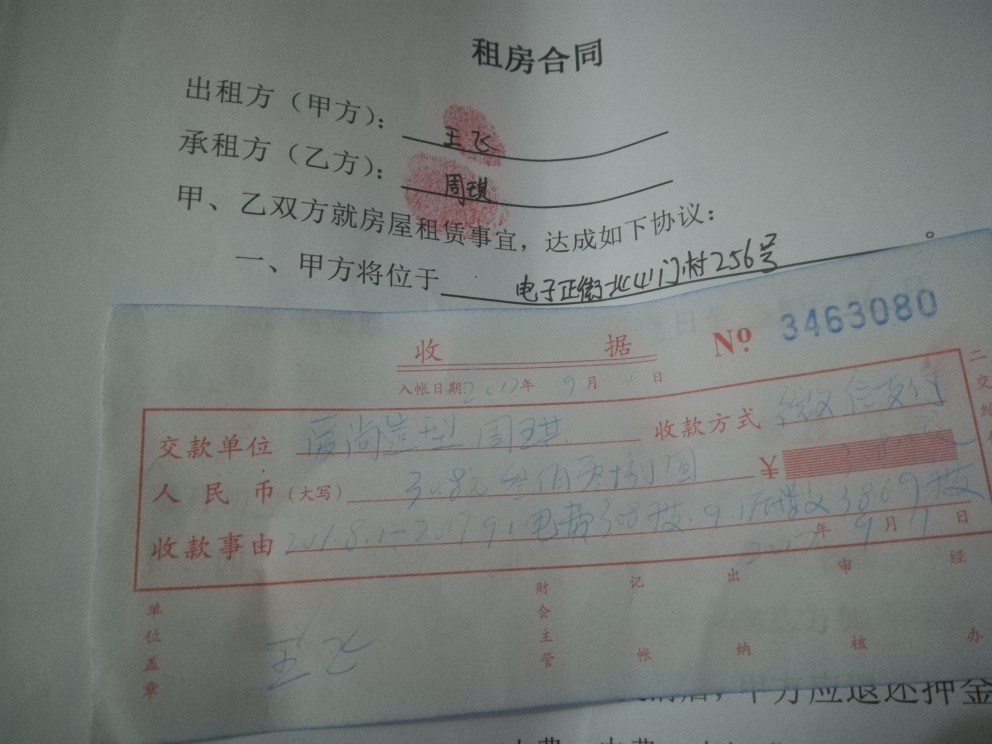 租房合同
出租方（甲方）：王飞
承租方（乙方）：周琪
甲、乙双方就房屋租赁事宜，达成如下协议：
一、甲方将位于 电子正街北山门村256号。
收 据 Nº 3463080
入帐日期：2017年 9月 1日
交款单位 爱尚造型 周琪 收款方式 微信支付
人民币（大写） 308元 叁佰零捌圆 ¥
收款事由 电费308度.9.1 3869度
2017年 9月 1日
单位盖章 王飞 财会主管 记帐 出纳 审核 经办
二交
甲方应退还押金